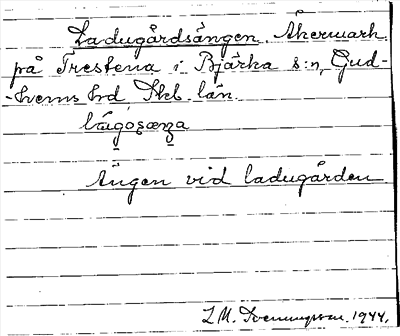 Ladugårdsängen. Åkermark
på Trestena i Bjärka s:n, Gud-
-hems hd, Skb. län.
Ängen vid ladugården
L. M. Svenungsson. 1944.